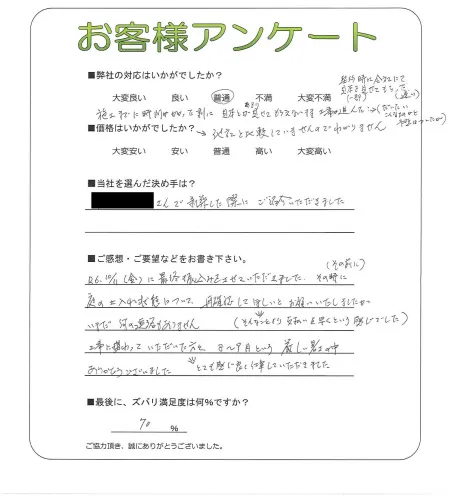 お客様アンケート
■弊社の対応はいかがでしたか?
大変良い 良い 普通 不満 大変不満
施工までに時間がかかった割に 見本とか見せてもらえないまま工事が進んだ
■価格はいかがでしたか? → 他社と比較していませんのでわかりません
大変安い 安い 普通 高い 大変高い
■当社を選んだ決め手は?
さんで新築した際にご紹介いただきました
■ご感想・ご要望などをお書き下さい。
(その前に)
R6.10/11(金)に最終振込みをさせていただきました。その時に
庭の土入れ状態について、再確認してほしいとお願いいたしましたが
いまだ何の連絡もありません (そんなことより支払いを早くという感じでした)
工事に携わっていただいた方々 8ヶ月という 厳しい暑さの中
ありがとうございました とても感じ良く仕事していただきました
■最後に、ズバリ満足度は何%ですか?
70 %
ご協力頂き、誠にありがとうございました。